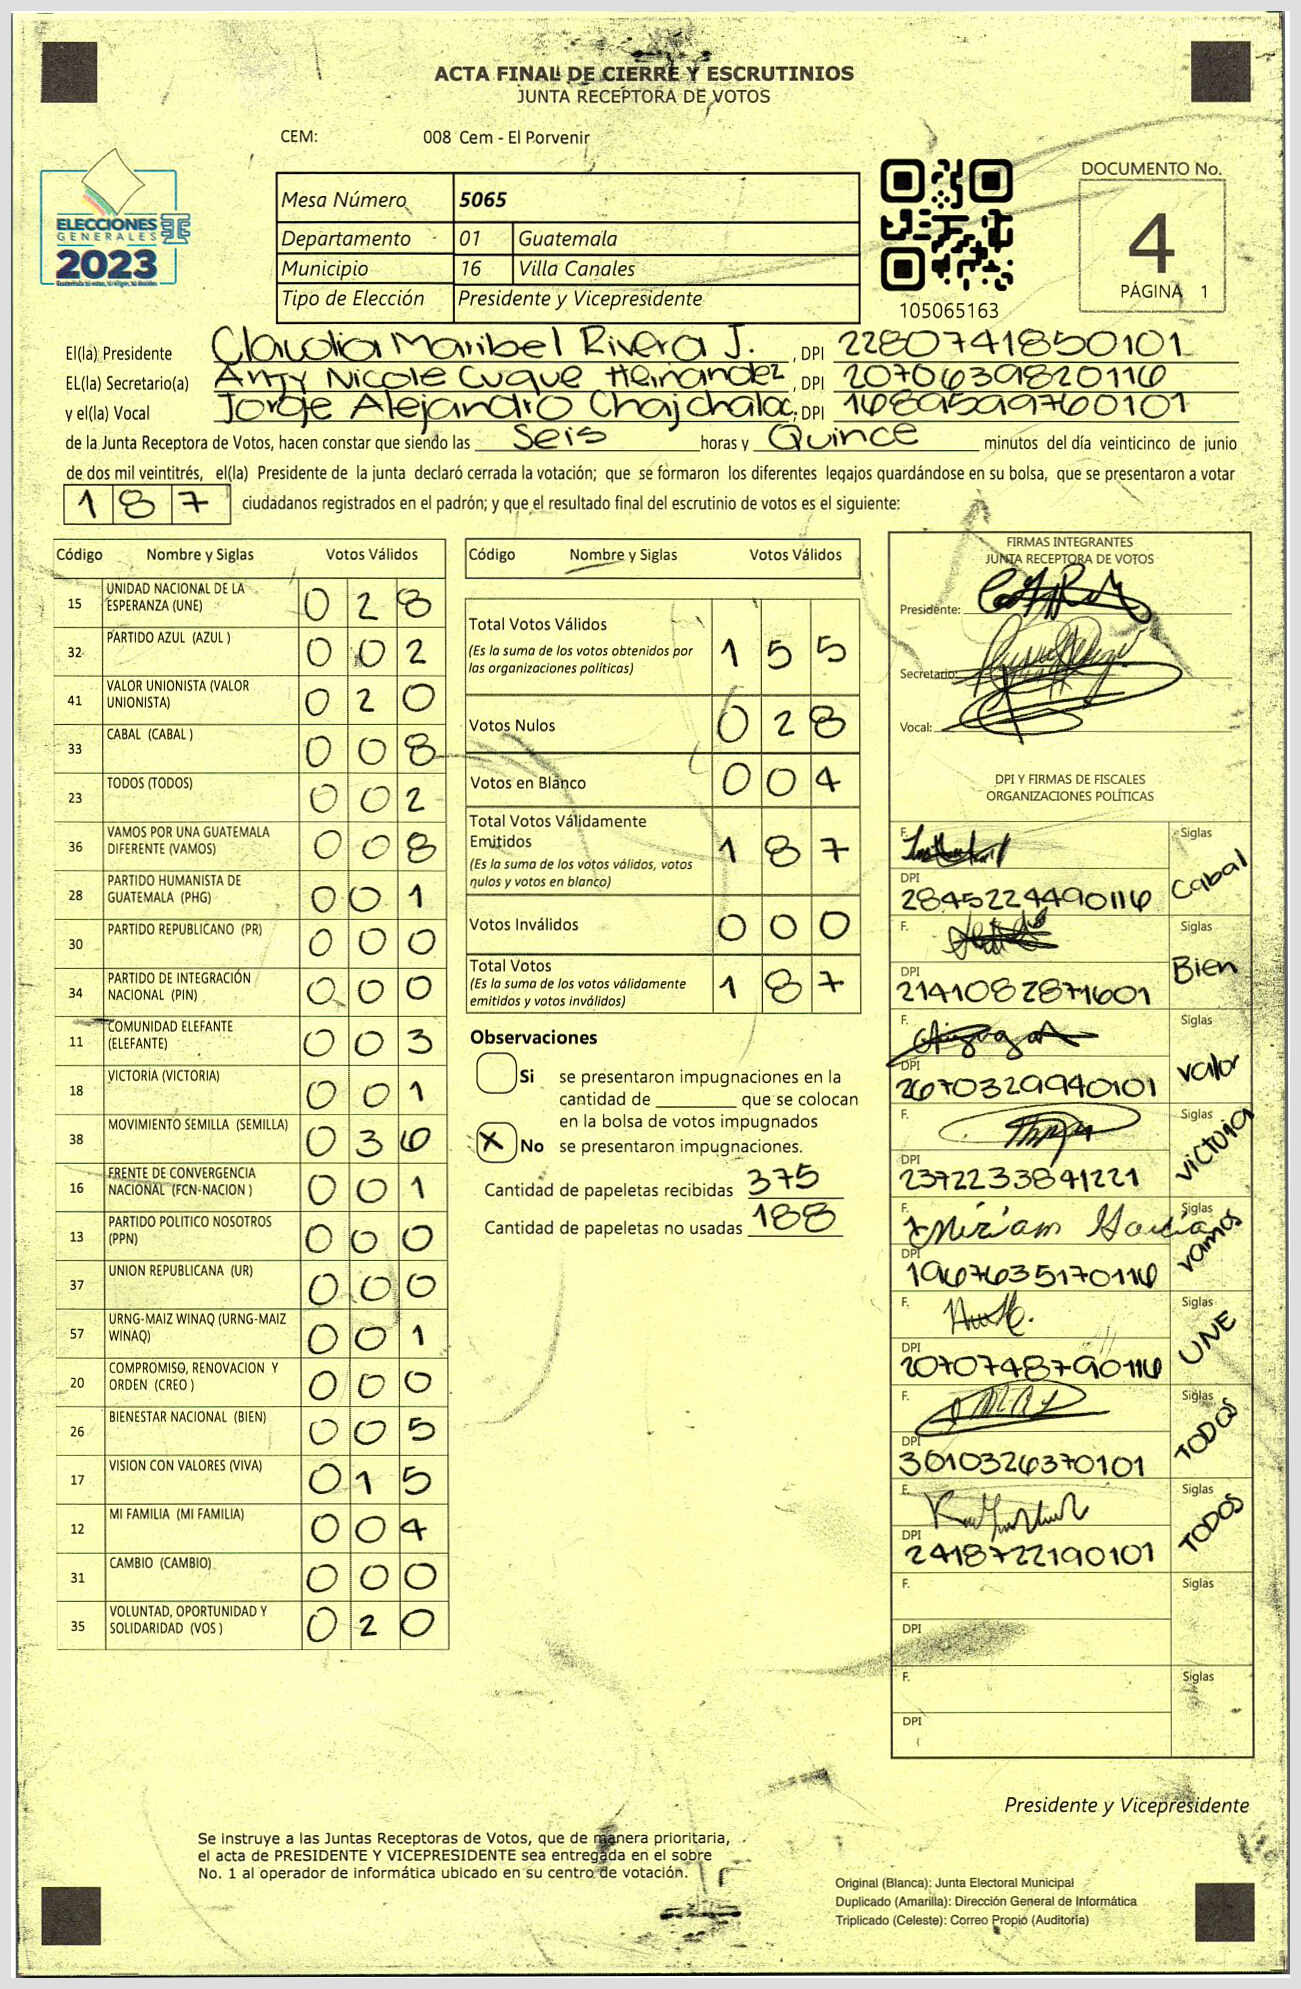 ACTA FINAL DE CIERRE Y ESCRUTINIOS
JUNTA RECEPTORA DE VOTOS
CEM: 008 Cem - El Porvenir
ELECCIONES
GENERALES
2023
Mesa Número 5065
Departamento 01 Guatemala
Municipio 16 Villa Canales
Tipo de Elección Presidente y Vicepresidente
105065163
DOCUMENTO No.
4
PÁGINA 1
El(la) Presidente Claudia Maribel Rivera J. , DPI 2280741850101
EL(la) Secretario(a) Anjy Nicole Cuque Hernández , DPI 2070639820116
y el(la) Vocal Jorge Alejandro Chajchalac, DPI 1689599760101
de la Junta Receptora de Votos, hacen constar que siendo las Seis horas y Quince minutos del día veinticinco de junio
de dos mil veintitrés, el(la) Presidente de la junta declaró cerrada la votación; que se formaron los diferentes legajos quardándose en su bolsa, que se presentaron a votar
187 ciudadanos registrados en el padrón; y que el resultado final del escrutinio de votos es el siguiente:
Código Nombre y Siglas Votos Válidos
15 UNIDAD NACIONAL DE LA ESPERANZA (UNE) 028
32 PARTIDO AZUL (AZUL ) 002
41 VALOR UNIONISTA (VALOR UNIONISTA) 020
33 CABAL (CABAL ) 008
23 TODOS (TODOS) 002
36 VAMOS POR UNA GUATEMALA DIFERENTE (VAMOS) 008
28 PARTIDO HUMANISTA DE GUATEMALA (PHG) 001
30 PARTIDO REPUBLICANO (PR) 000
34 PARTIDO DE INTEGRACIÓN NACIONAL (PIN) 000
11 COMUNIDAD ELEFANTE (ELEFANTE) 003
18 VICTORIA (VICTORIA) 001
38 MOVIMIENTO SEMILLA (SEMILLA) 036
16 FRENTE DE CONVERGENCIA NACIONAL (FCN-NACION ) 001
13 PARTIDO POLITICO NOSOTROS (PPN) 000
37 UNION REPUBLICANA (UR) 000
57 URNG-MAIZ WINAQ (URNG-MAIZ WINAQ) 001
20 COMPROMISO, RENOVACION Y ORDEN (CREO ) 000
26 BIENESTAR NACIONAL (BIEN) 005
17 VISION CON VALORES (VIVA) 015
12 MI FAMILIA (MI FAMILIA) 004
31 CAMBIO (CAMBIO) 000
35 VOLUNTAD, OPORTUNIDAD Y SOLIDARIDAD (VOS ) 020
Código Nombre y Siglas Votos Válidos
Total Votos Válidos 155
(Es la suma de los votos obtenidos por
las organizaciones políticas)
Votos Nulos 028
Votos en Blanco 004
Total Votos Válidamente
Emitidos 187
(Es la suma de los votos válidos, votos
nulos y votos en blanco)
Votos Inválidos 000
Total Votos 187
(Es la suma de los votos válidamente
emitidos y votos inválidos)
Observaciones
Si se presentaron impugnaciones en la
cantidad de ________ que se colocan
en la bolsa de votos impugnados
X No se presentaron impugnaciones.
Cantidad de papeletas recibidas 375
Cantidad de papeletas no usadas 188
FIRMAS INTEGRANTES
JUNTA RECEPTORA DE VOTOS
Presidente:
Secretario:
Vocal:
DPI Y FIRMAS DE FISCALES
ORGANIZACIONES POLÍTICAS
F. Siglas Cabal
DPI 2845224490116
F. Siglas Bien
DPI 2141082871601
F. Siglas valor
DPI 2670329940101
F. Siglas victoria
DPI 2372233841221
F. Miriam García Siglas vamos
DPI 1967635170116
F. Siglas UNE
DPI 2070748790116
F. Siglas TODOS
DPI 3010326370101
F. Siglas TODOS
DPI 2418722190101
F. Siglas
DPI
F. Siglas
DPI
Presidente y Vicepresidente
Se instruye a las Juntas Receptoras de Votos, que de manera prioritaria,
el acta de PRESIDENTE Y VICEPRESIDENTE sea entregada en el sobre
No. 1 al operador de informática ubicado en su centro de votación.
Original (Blanca): Junta Electoral Municipal
Duplicado (Amarilla): Dirección General de Informática
Triplicado (Celeste): Correo Propio (Auditoría)